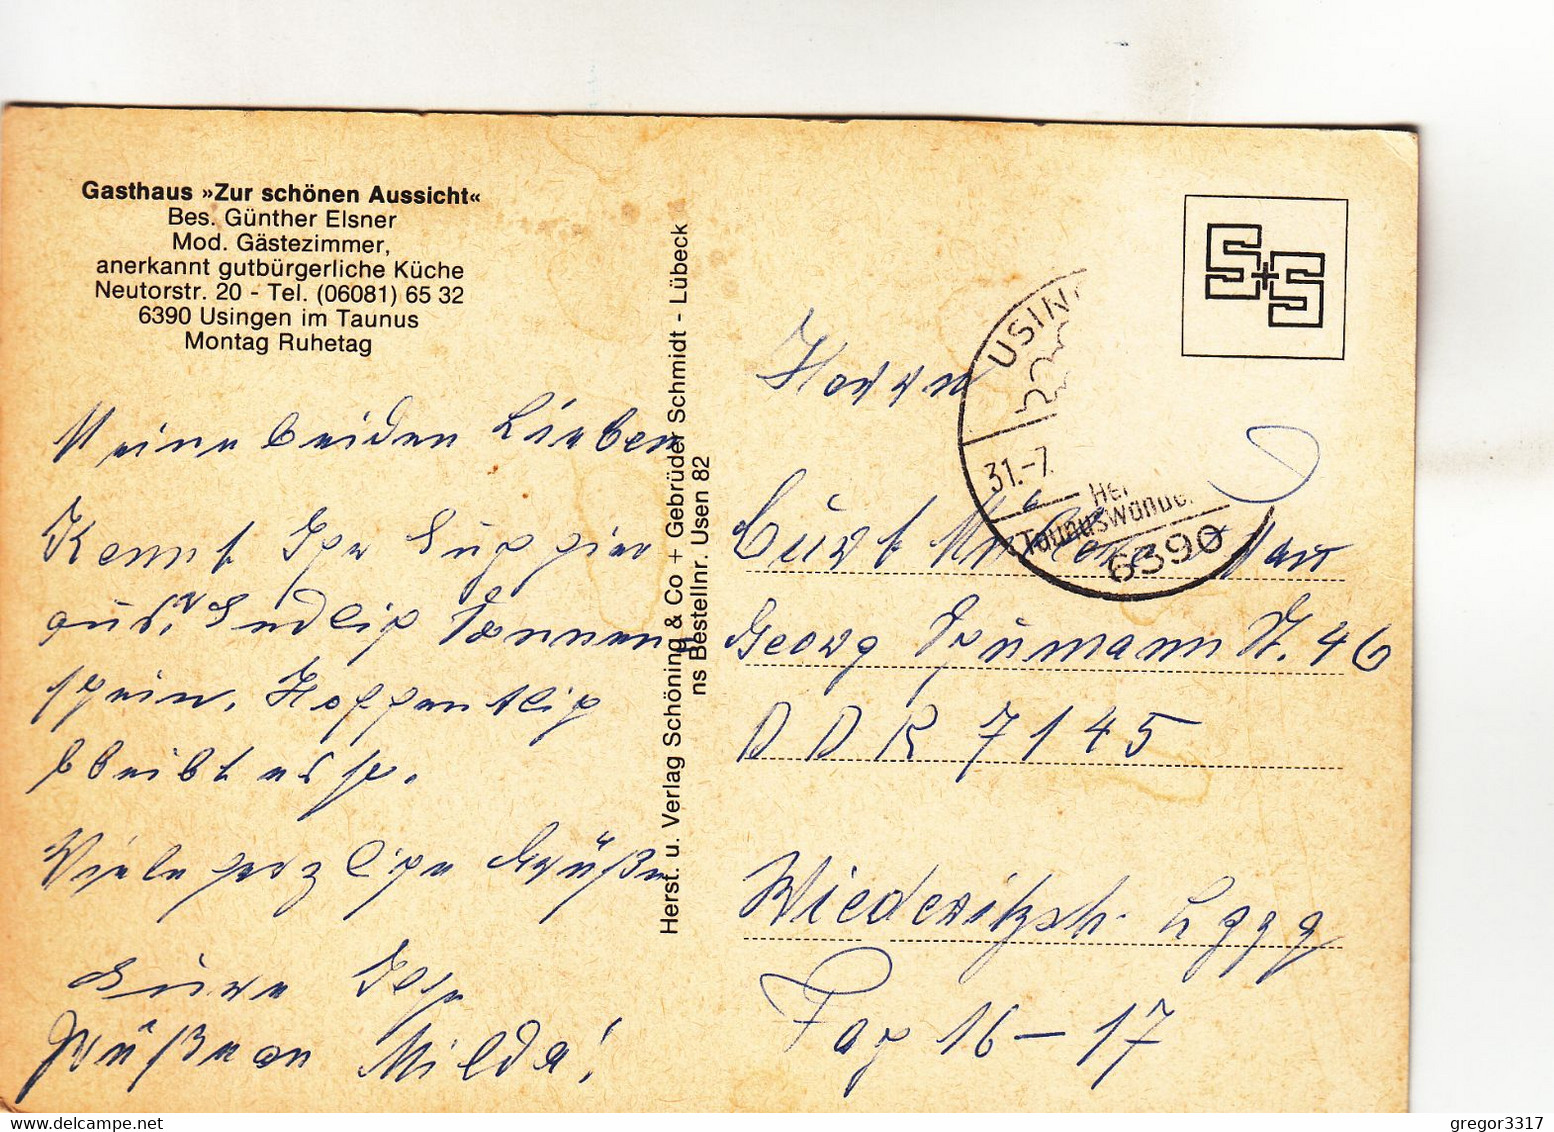 Gasthaus »Zur schönen Aussicht«
Bes. Günther Elsner
Mod. Gästezimmer,
anerkannt gutbürgerliche Küche
Neutorstr. 20 - Tel. (06081) 65 32
6390 Usingen im Taunus
Montag Ruhetag
Meine beiden Lieben
Kennt Ihr Euch hier
aus? Endlich Sonnen
schein. Hoffentlich
bleibt es so.
Viele herzliche Grüße
Eure
Grüße an Milda!
Herst. u. Verlag Schöning & Co + Gebrüder Schmidt - Lübeck
ns Bestellnr. Usen 82
S+S
USIN
31.-7.
Taunuswande
6390
Herrn
Curt
Georg Schumann St. 46
DDR 7145
Wiederitzsch.
Fach 16-17
gregor3317